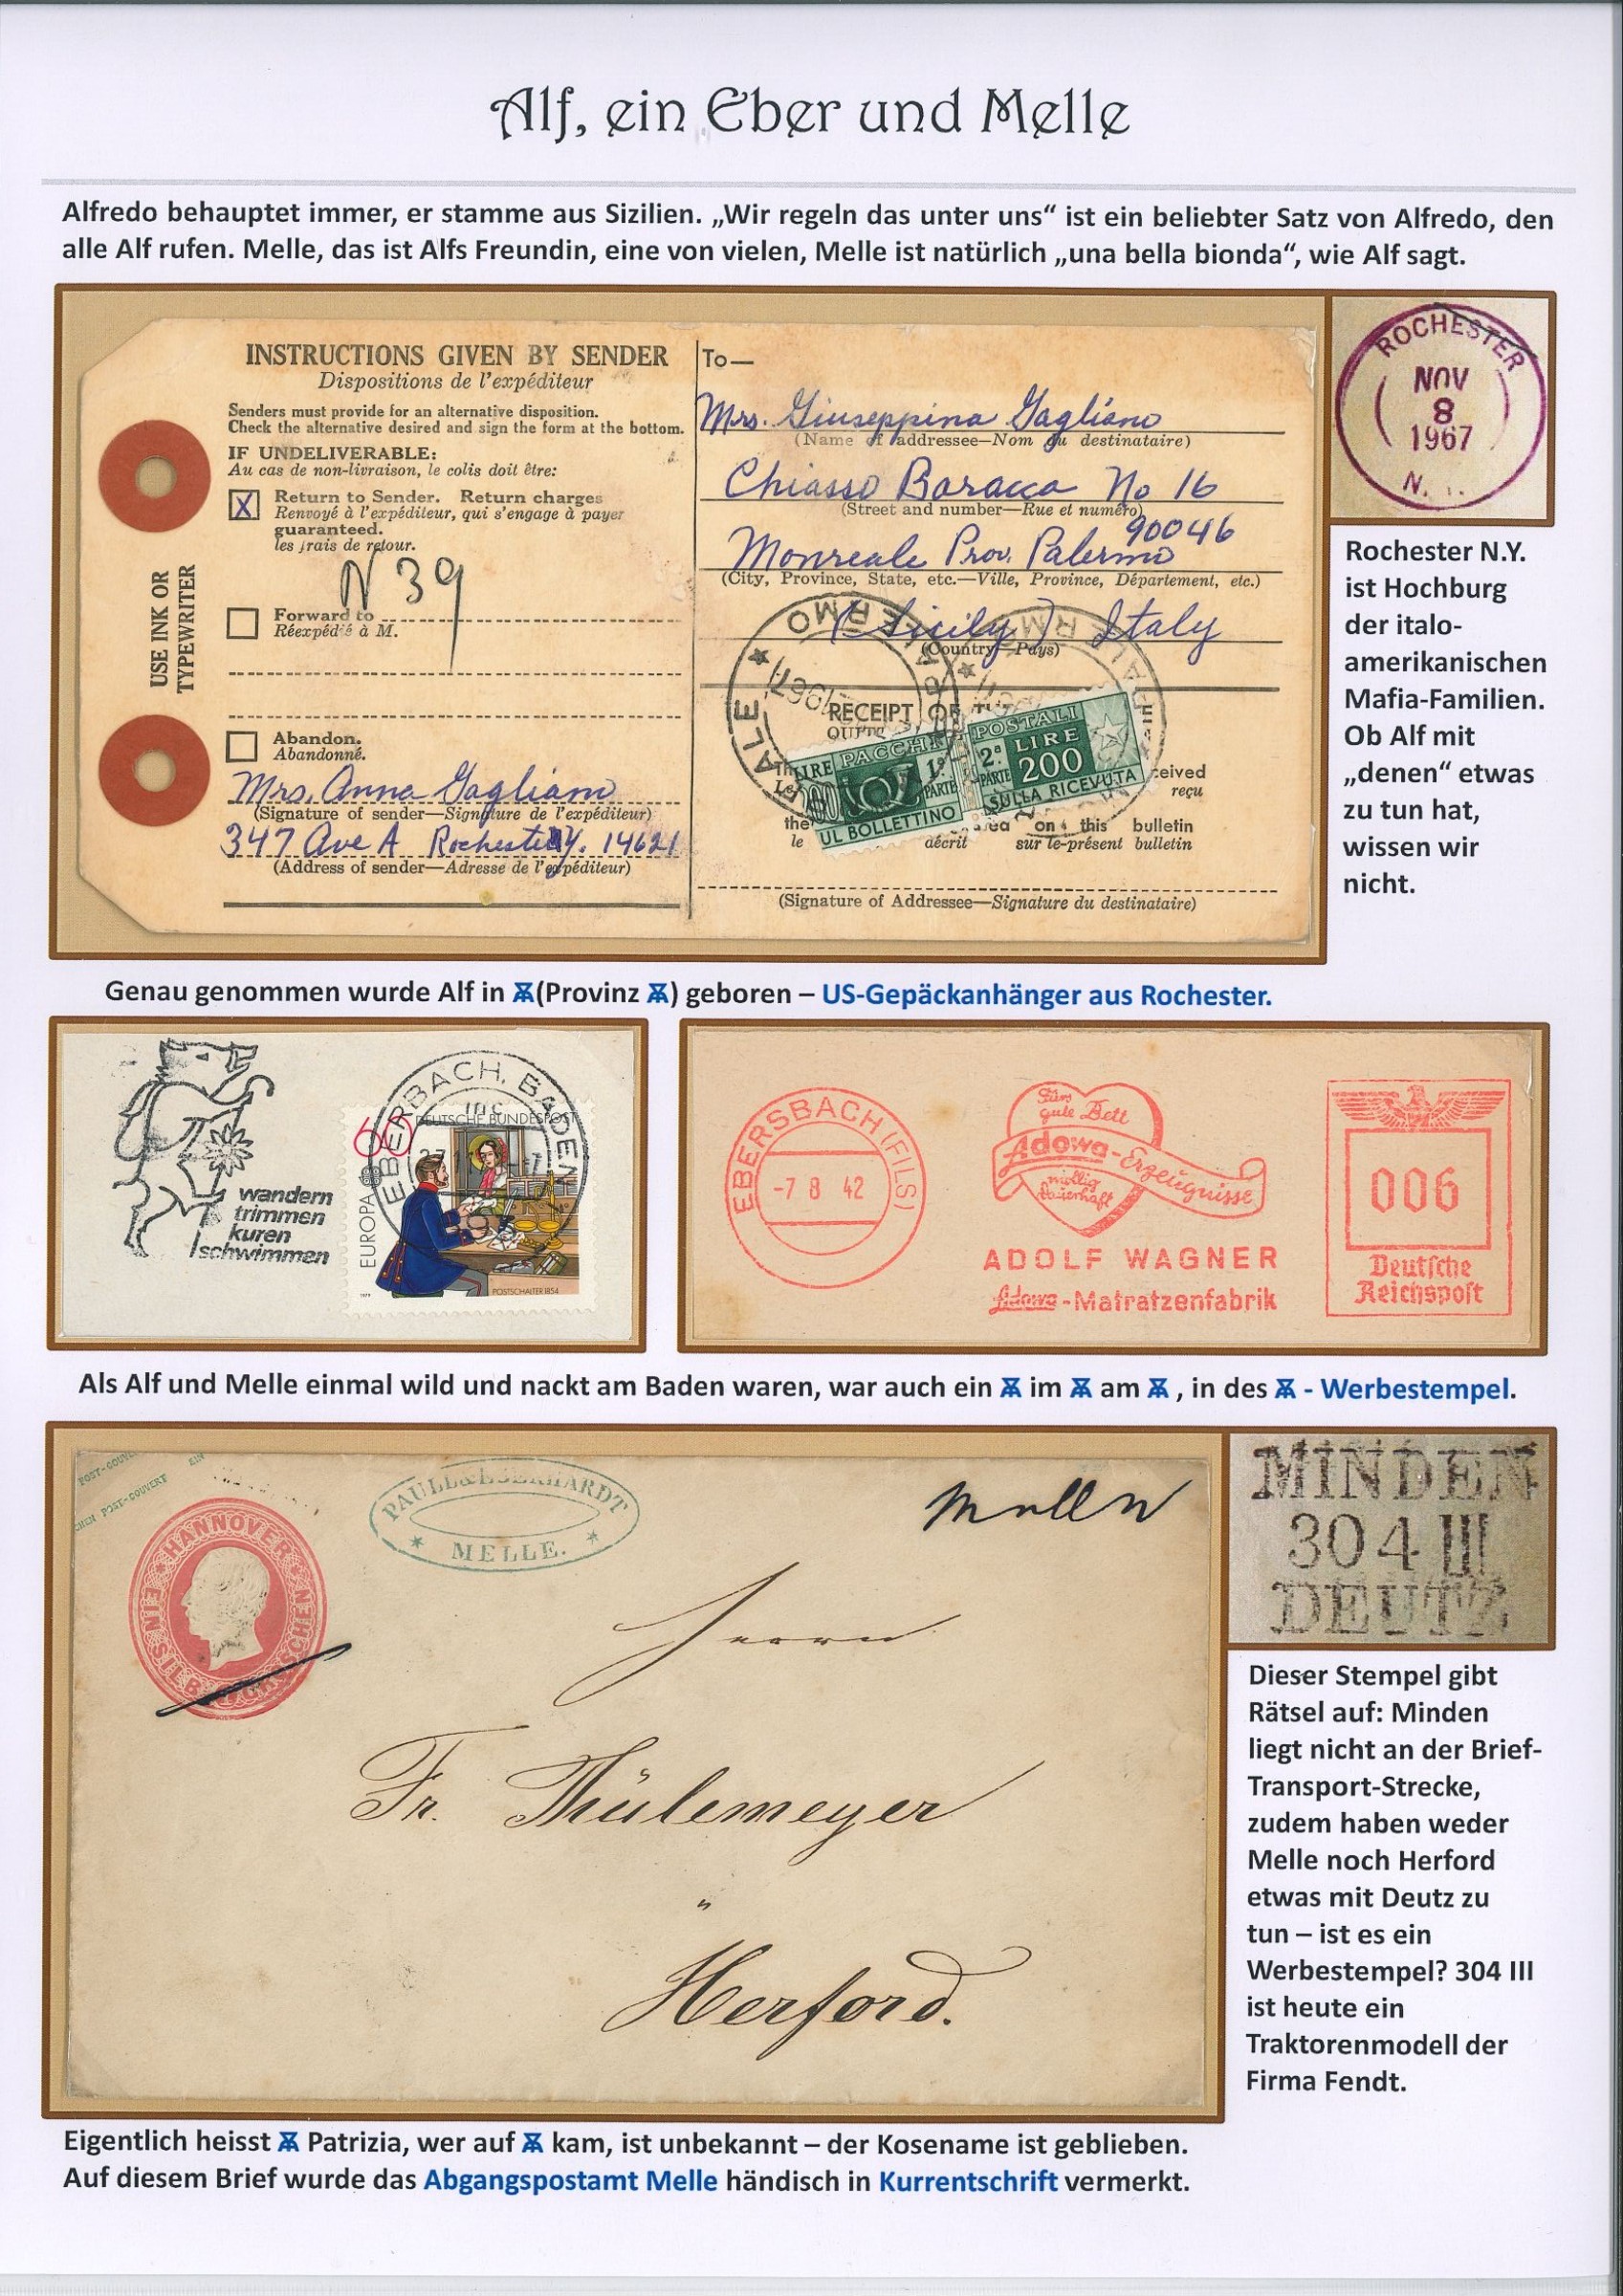 Alf, ein Eber und Melle
Alfredo behauptet immer, er stamme aus Sizilien. „Wir regeln das unter uns“ ist ein beliebter Satz von Alfredo, den
alle Alf rufen. Melle, das ist Alfs Freundin, eine von vielen, Melle ist natürlich „una bella bionda“, wie Alf sagt.
INSTRUCTIONS GIVEN BY SENDER
Dispositions de l'expéditeur
Senders must provide for an alternative disposition.
Check the alternative desired and sign the form at the bottom.
IF UNDELIVERABLE:
Au cas de non-livraison, le colis doit être:
X
Return to Sender. Return charges
Renvoyé à l'expéditeur, qui s'engage à payer
guaranteed.
les frais de retour.
N 39
Forward to
Réexpédié à M.
USE INK OR
TYPEWRITER
Abandon.
Abandonné.
Mrs. Anna Gagliano
(Signature of sender—Signature de l'expéditeur)
347 Ave A Rochester N.Y. 14621
(Address of sender—Adresse de l'expéditeur)
To—
Mrs. Giuseppina Gagliano
(Name of addressee—Nom du destinataire)
Chiasso Baracca No 16
(Street and number—Rue et numéro)
90046
Monreale Prov. Palermo
(City, Province, State, etc.—Ville, Province, Département, etc.)
(Sicily) Italy
(Country—Pays)
RECEIPT OF
PACCHI
POSTALI
LIRE
1ª
PARTE
2ª
PARTE
LIRE
200
UL BOLLETTINO
SULLA RICEVUTA
ceived
reçu
the
le
décrit
on this bulletin
sur le-présent bulletin
(Signature of Addressee—Signature du destinataire)
ROCHESTER
NOV
8
1967
N.
Rochester N.Y.
ist Hochburg
der italo-
amerikanischen
Mafia-Familien.
Ob Alf mit
„denen“ etwas
zu tun hat,
wissen wir
nicht.
Genau genommen wurde Alf in (Provinz ) geboren – US-Gepäckanhänger aus Rochester.
wandern
trimmen
kuren
schwimmen
EBERBACH, BADEN
60
DEUTSCHE BUNDESPOST
EUROPA
1979
POSTSCHALTER 1854
EBERSBACH (FILS)
-7 8 42
Fürs
gute Bett
Adowa-Erzeugnisse
mollig
dauerhaft
ADOLF WAGNER
Adowa-Matratzenfabrik
006
Deutsche
Reichspost
Als Alf und Melle einmal wild und nackt am Baden waren, war auch ein im am , in des - Werbestempel.
POST-COUVERT
HANNOVER
EIN SILBERGROSCHEN
PAULL&EBERHARDT
MELLE.
Melle
Herrn
Fr. Thülemeyer
Herford.
MINDEN
304 III
DEUTZ
Dieser Stempel gibt
Rätsel auf: Minden
liegt nicht an der Brief-
Transport-Strecke,
zudem haben weder
Melle noch Herford
etwas mit Deutz zu
tun – ist es ein
Werbestempel? 304 III
ist heute ein
Traktorenmodell der
Firma Fendt.
Eigentlich heisst Patrizia, wer auf kam, ist unbekannt – der Kosename ist geblieben.
Auf diesem Brief wurde das Abgangspostamt Melle händisch in Kurrentschrift vermerkt.